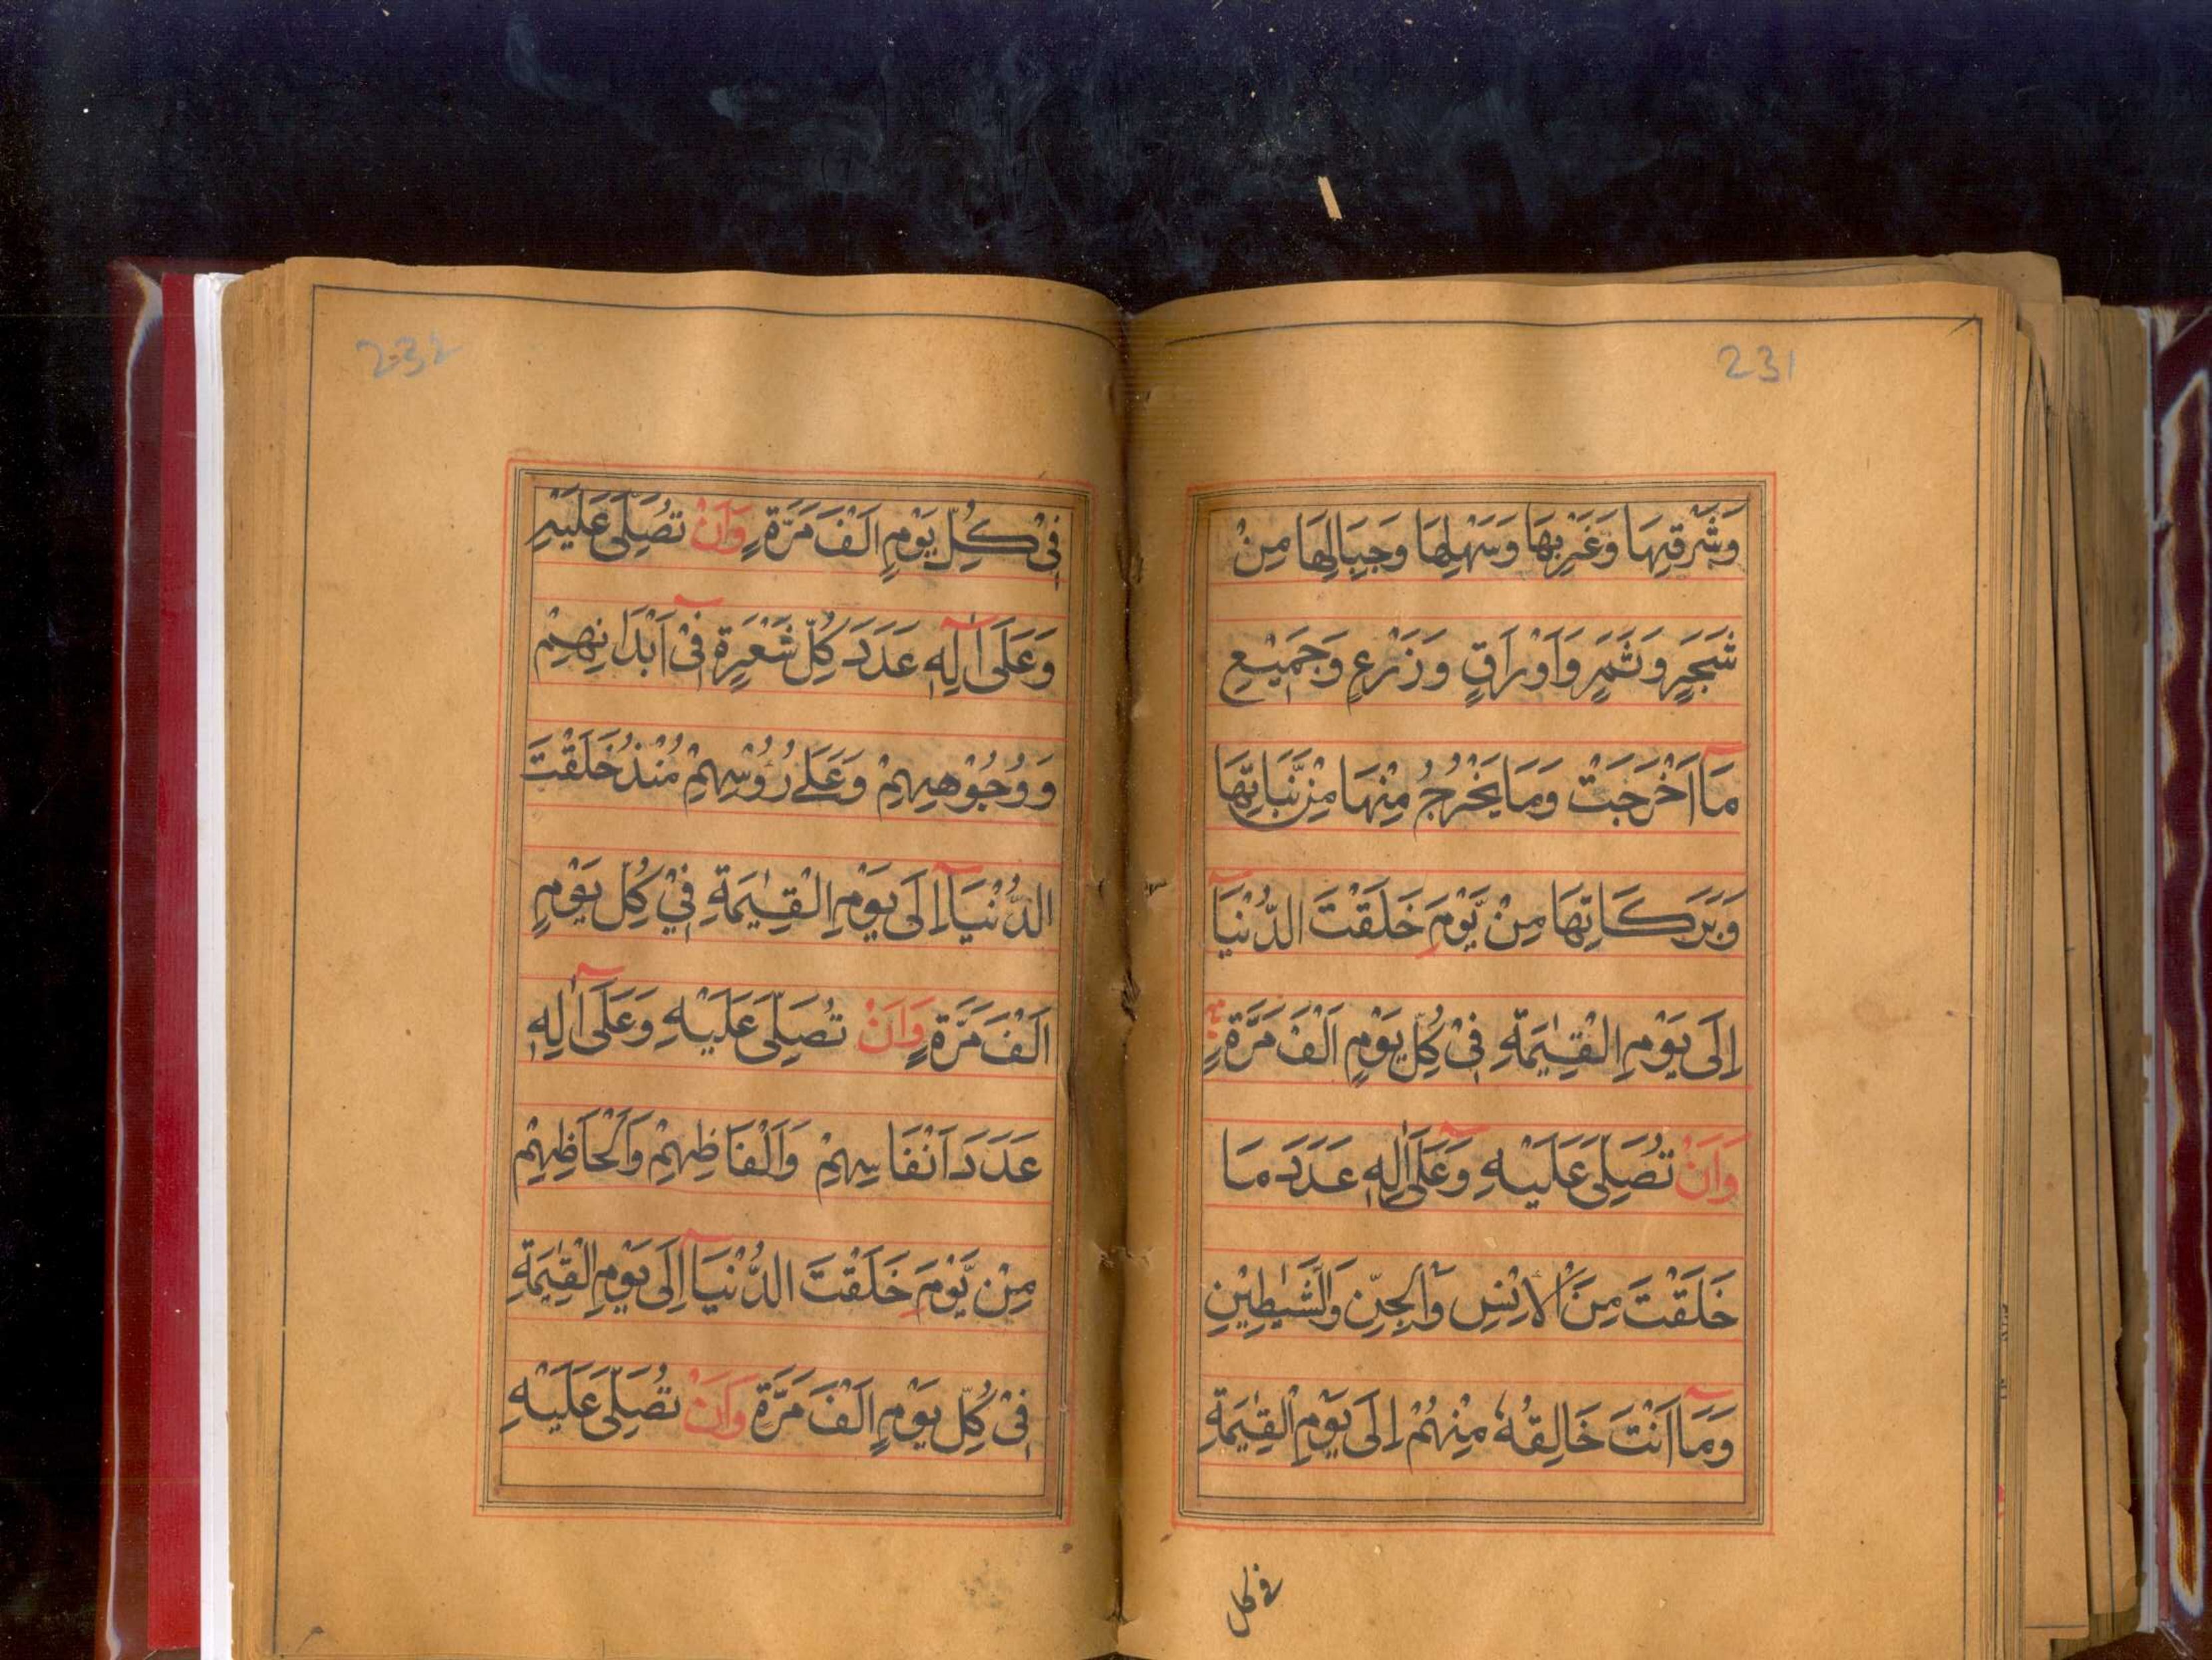 231
وَشَرْقِهَا وَغَرْبِهَا وَسَهْلِهَا وَجِبَالِهَا مِنْ
شَجَرٍ وَثَمَرٍ وَاَوْرَاقٍ وَزَرْعٍ وَجَمِيْعِ
مَآ اَخْرَجَتْ وَمَا يَخْرُجُ مِنْهَا مِنْ نَّبَاتِهَا
وَبَرَكَاتِهَا مِنْ يَّوْمَ خَلَقْتَ الدُّنْيَآ
اِلَى يَوْمِ الْقِيٰمَةِ فِيْ كُلِّ يَوْمٍ اَلْفَ مَرَّةٍ
وَاَنْ تُصَلِّيَ عَلَيْهِ وَعَلَىٰٓ اٰلِهٖ عَدَدَ مَا
خَلَقْتَ مِنَ الْاِنْسِ وَالْجِنِّ وَالشَّيٰطِيْنِ
وَمَآ اَنْتَ خَالِقُهٗ مِنْهُمْ اِلَى يَوْمِ الْقِيٰمَةِ
في كل
232
فِيْ كُلِّ يَوْمٍ اَلْفَ مَرَّةٍ وَاَنْ تُصَلِّيَ عَلَيْهِ
وَعَلَىٓ اٰلِهٖ عَدَدَ كُلِّ شَعْرَةٍ فِيْٓ اَبْدَانِهِمْ
وَوُجُوْهِهِمْ وَعَلٰى رُؤُسِهِمْ مُنْذُ خَلَقْتَ
الدُّنْيَآ اِلَى يَوْمِ الْقِيٰمَةِ فِيْ كُلِّ يَوْمٍ
اَلْفَ مَرَّةٍ وَاَنْ تُصَلِّيَ عَلَيْهِ وَعَلَىٓ اٰلِهٖ
عَدَدَ اَنْفَاسِهِمْ وَاَلْفَاظِهِمْ وَاَلْحَاظِهِمْ
مِنْ يَّوْمَ خَلَقْتَ الدُّنْيَآ اِلَى يَوْمِ الْقِيٰمَةِ
فِيْ كُلِّ يَوْمٍ اَلْفَ مَرَّةٍ وَاَنْ تُصَلِّيَ عَلَيْهِ